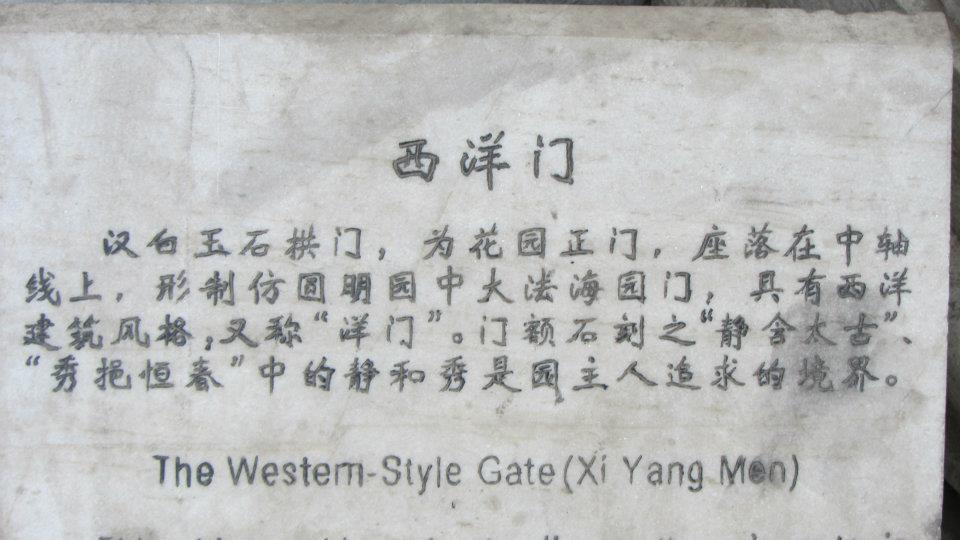 西洋门
汉白玉石拱门，为花园正门，座落在中轴
线上，形制仿圆明园中大法海园门，具有西洋
建筑风格，又称“洋门”。门额石刻之“静含太古”、
“秀挹恒春”中的静和秀是园主人追求的境界。
The Western-Style Gate(Xi Yang Men)